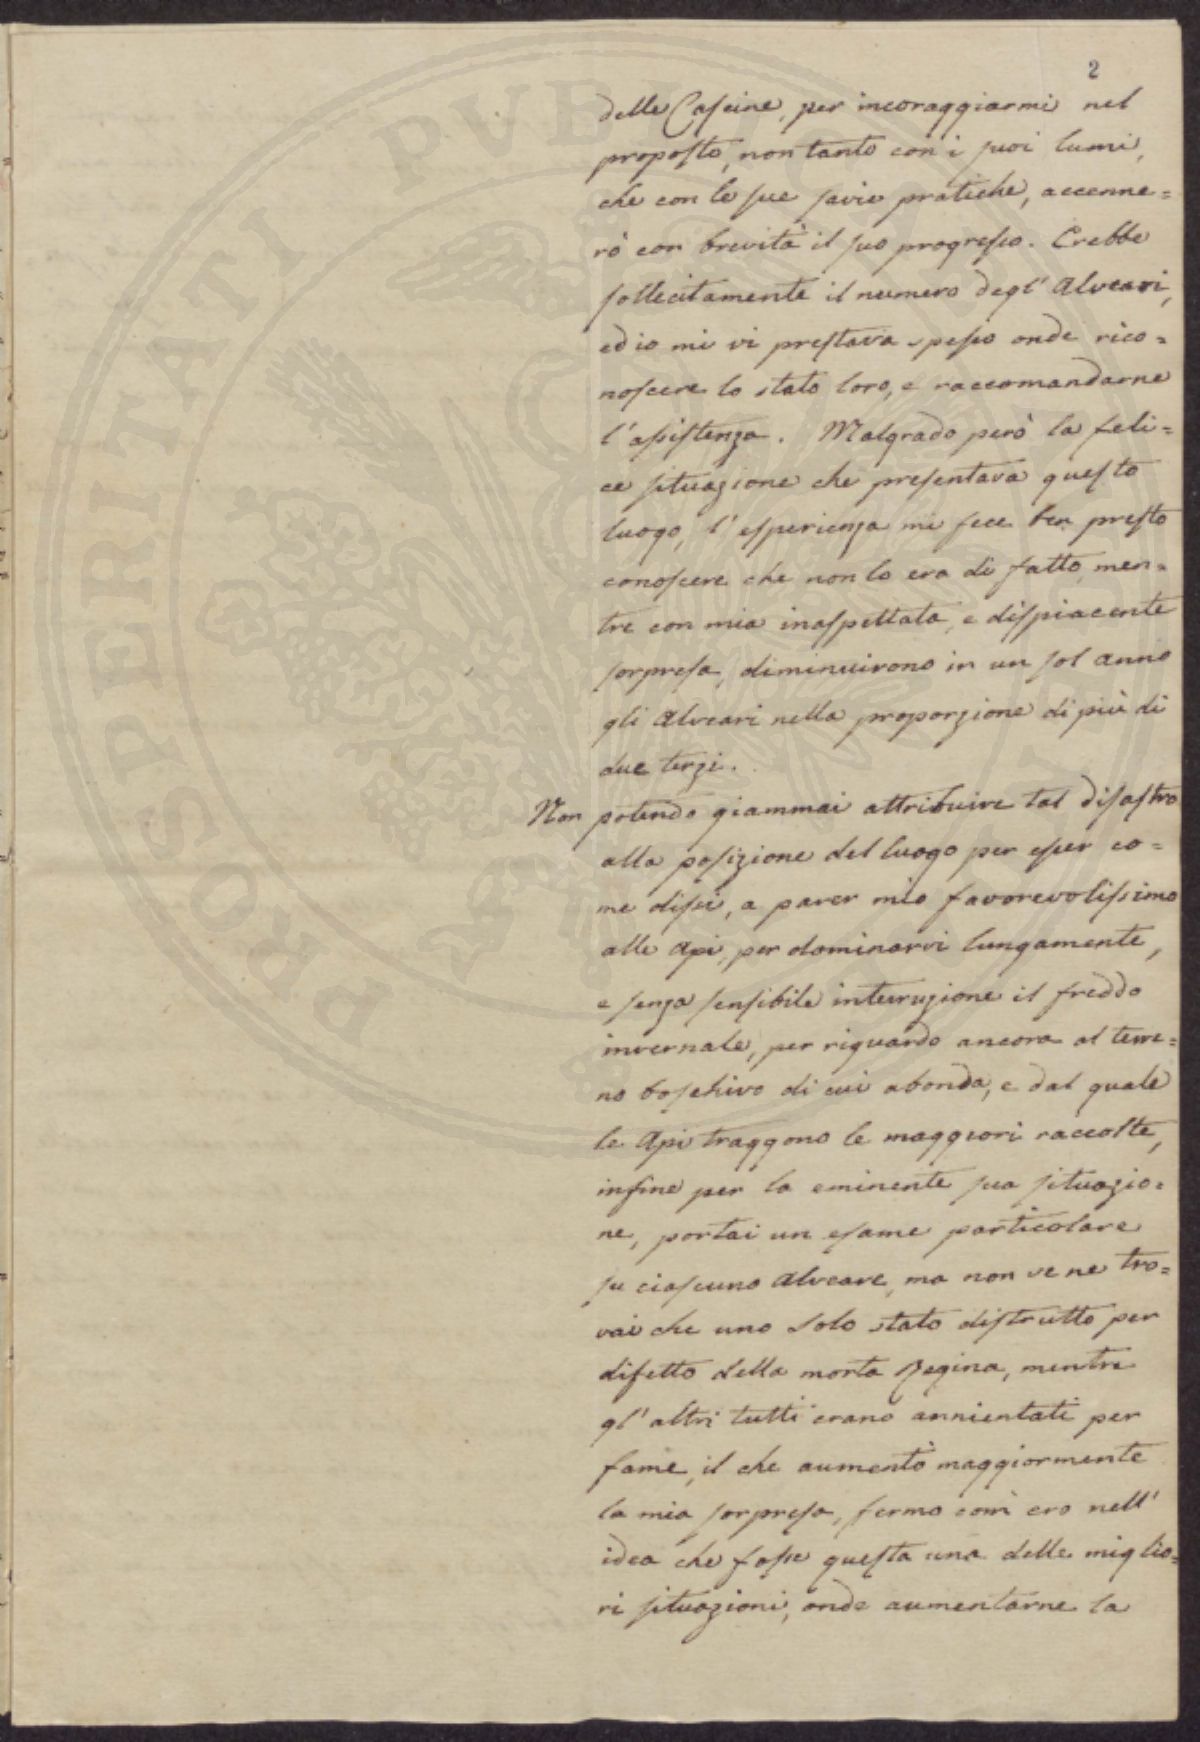 PROSPERITATI PUBLICAE
2
delle Cascine, per incoraggiarmi nel
proposto, non tanto con i suoi lumi,
che con le sue savie pratiche, accenne=
rò con brevità il suo progresso. Crebbe
sollecitamente il numero degl' Alveari,
ed io mi vi prestava spesso onde rico=
noscere lo stato loro, e raccomandarne
l'assistenza. Malgrado però la feli=
ce situazione che presentava questo
luogo, l'esperienza mi fece ben presto
conoscere che non lo era di fatto, men=
tre con mia inaspettata, e dispiacente
sorpresa, diminuirono in un sol anno
gli Alveari nella proporzione di più di
due terzi.
Non potendo giammai attribuire tal disastro
alla posizione del luogo per esser co=
me dissi, a parer mio favorevolissimo
alle Api, per dominarvi lungamente,
e senza sensibile interruzione il freddo
invernale, per riguardo ancora al terre=
no boschivo di cui abonda, e dal quale
le Api traggono le maggiori raccolte,
infine per la eminente sua situazio=
ne, portai un esame particolare
su ciascuno Alveare, ma non ve ne tro=
vai che uno solo stato distrutto per
difetto della morta Regina, mentre
gl' altri tutti erano annientati per
fame, il che aumentò maggiormente
la mia sorpresa, fermo com' ero nell'
idea che fosse questa una delle miglio=
ri situazioni, onde aumentarne la